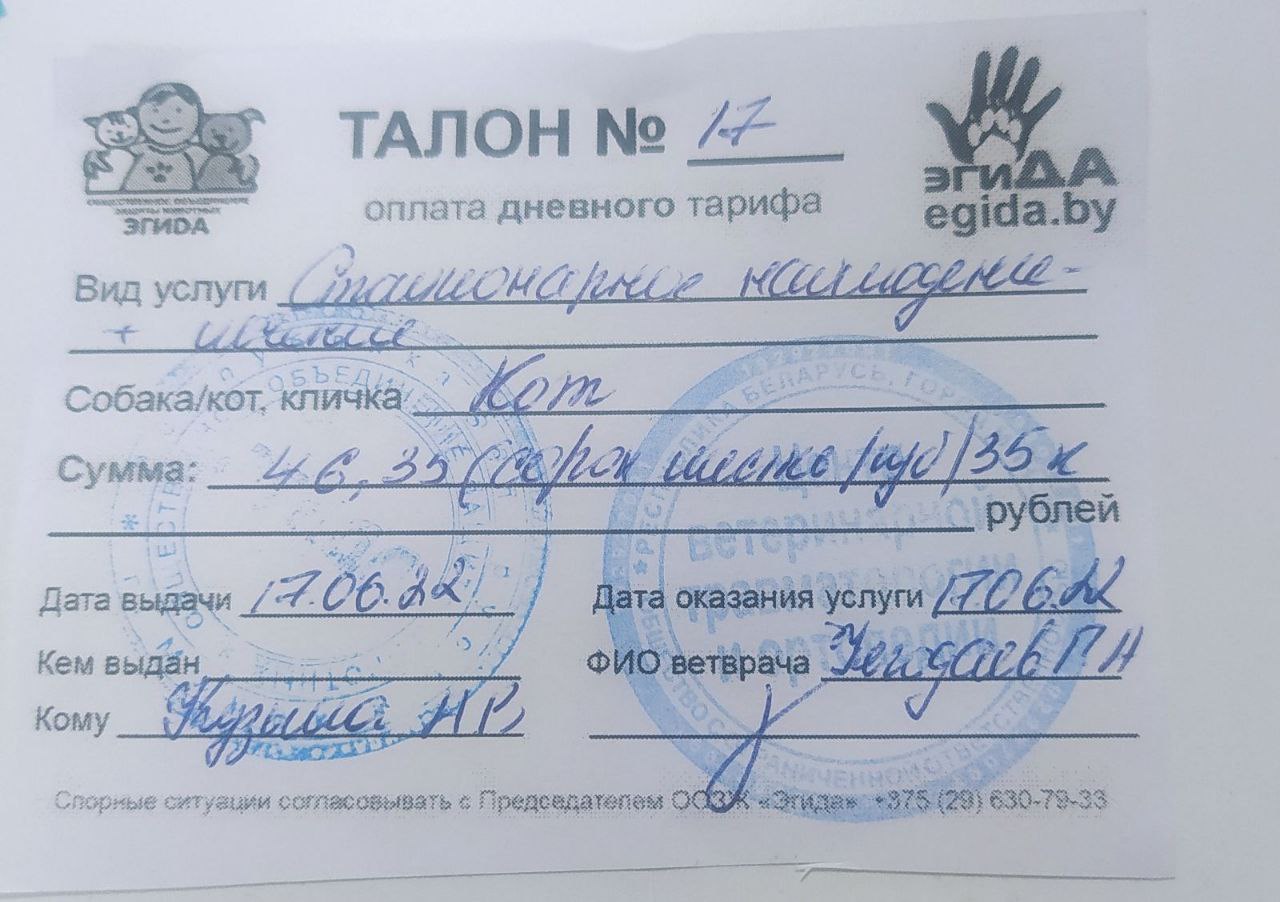 ТАЛОН № 17
оплата дневного тарифа
ОБЩЕСТВЕННОЕ ОБЪЕДИНЕНИЕ
ЗАЩИТЫ ЖИВОТНЫХ
ЭГИДА
эгиДА
egida.by
Вид услуги Стационарное наблюдение
+ лечение
Собака/кот, кличка Кот
Сумма: 46,35 (сорок шесть руб) 35 к
рублей
Дата выдачи 17.06.22
Дата оказания услуги 17.06.22
Кем выдан
ФИО ветврача П Н
Кому Н В
Спорные ситуации согласовывать с Председателем ООЗЖ «Эгида» +375 (29) 630-79-33
РЕСПУБЛИКА БЕЛАРУСЬ, ГОРОД
ветеринарной
травматологии
и ортопедии